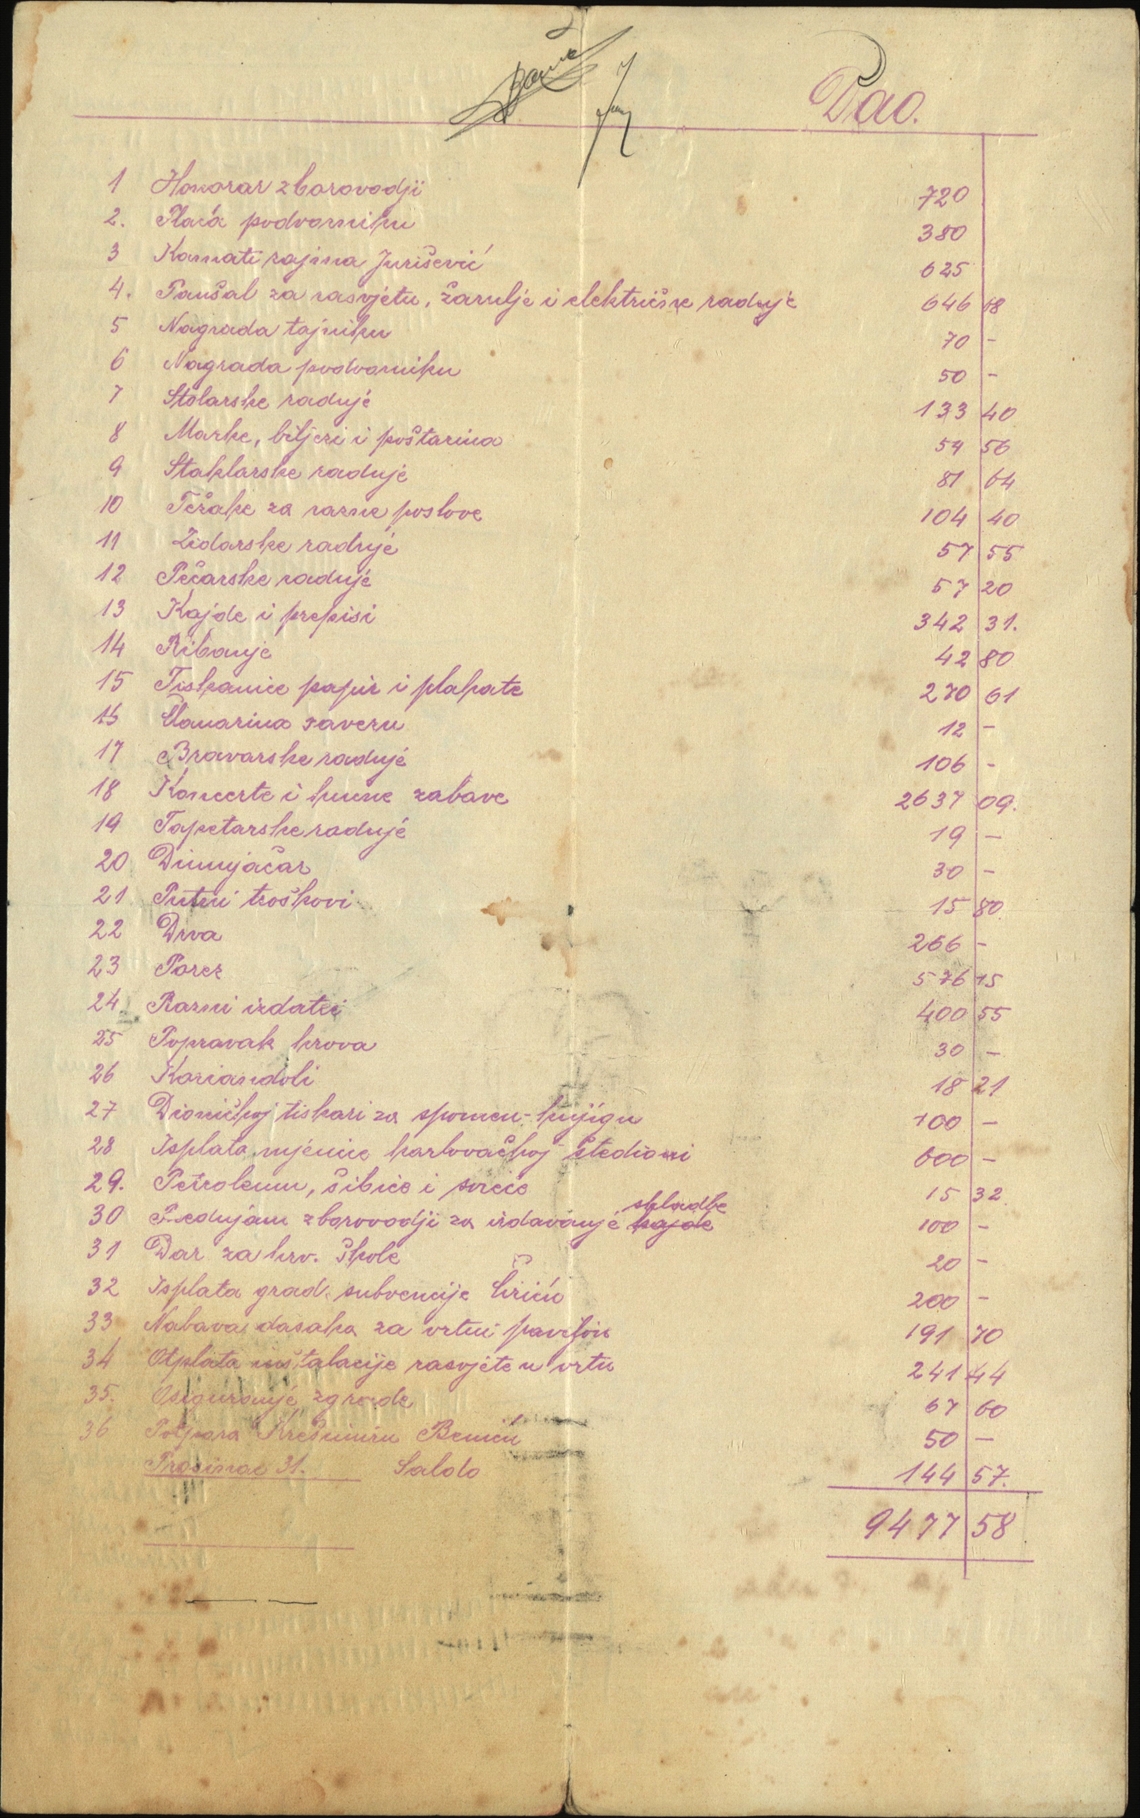 Dao.
1 Honorar zborovodji 720
2. Plaća podvorniku 380
3 Kamati zajma Jurišević 625
4. Paušal za rasvjetu, žarulje i električne radnje 646 18
5 Nagrada tajniku 70 -
6 Nagrada podvorniku 50 -
7 Stolarske radnje 133 40
8 Marke, biljezi i poštarina 54 56
9 Staklarske radnje 81 64
10 Težake za razne poslove 104 40
11 Zidarske radnje 57 55
12 Pećarske radnje 57 20
13 Kajde i prepisi 342 31.
14 Ribanje 42 80
15 Tiskanice papir i plakate 270 61
16 Članarina savezu 12 -
17 Bravarske radnje 106 -
18 Koncerte i kućne zabave 2637 09.
19 Tapetarske radnje 19 -
20 Dimnjačar 30 -
21 Putni troškovi 15 80
22 Drva 266 -
23 Porez 576 15
24. Razni izdatci 400 55
25 Popravak krova 30 -
26 Koriandoli 18 21
27 Dioničkoj tiskari za spomen-knjigu 100 -
28 Isplata mjenice karlovačkoj štedioni 600 -
29. Petroleum, šibice i svieće 15 32
30 Predujam zborovodji za izdavanje kajde skladbe 100 -
31 Dar za hrv. škole 20 -
32 Isplata grad. subvencije Ćiriću 200 -
33 Nabava dasaka za vrtni paviljon 191 70
34 Otplata instalacije rasvjete u vrtu 241 44
35. Osiguranje zgrade 67 60
36 Potpora Krešimiru Beniću 50 -
Prosinac 31. Saldo 144 57.
9477 58